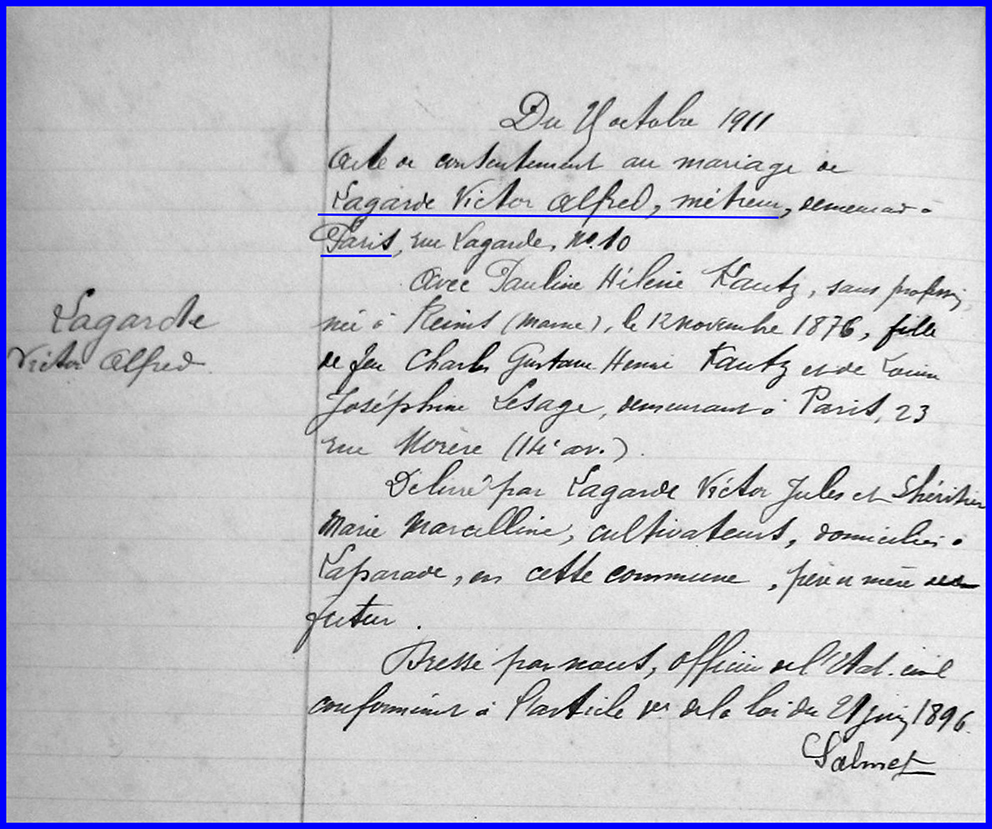 Du 9 octobre 1911
Acte de consentement au mariage de
Lagarde Victor Alfred, métreur, demeurant à
Paris, rue Lagarde, No. 10
Avec Pauline Hélène Kautz, sans profession,
née à Reims (Marne), le 12 novembre 1876, fille
Lagarde
Victor Alfred
de feu Charles Gustave Henri Kautz et de Louise
Joséphine Lesage, demeurant à Paris, 23
rue Morère (14e arr.)
Délivré par Lagarde Victor Jules et Lhéritier
Marie Marcelline, cultivateurs, domiciliés à
Laparade, en cette commune, père et mère du
futur.
Dressé par nous, officier de l'Etat-civil
conformément à l'article 1er de la loi du 21 juin 1896.